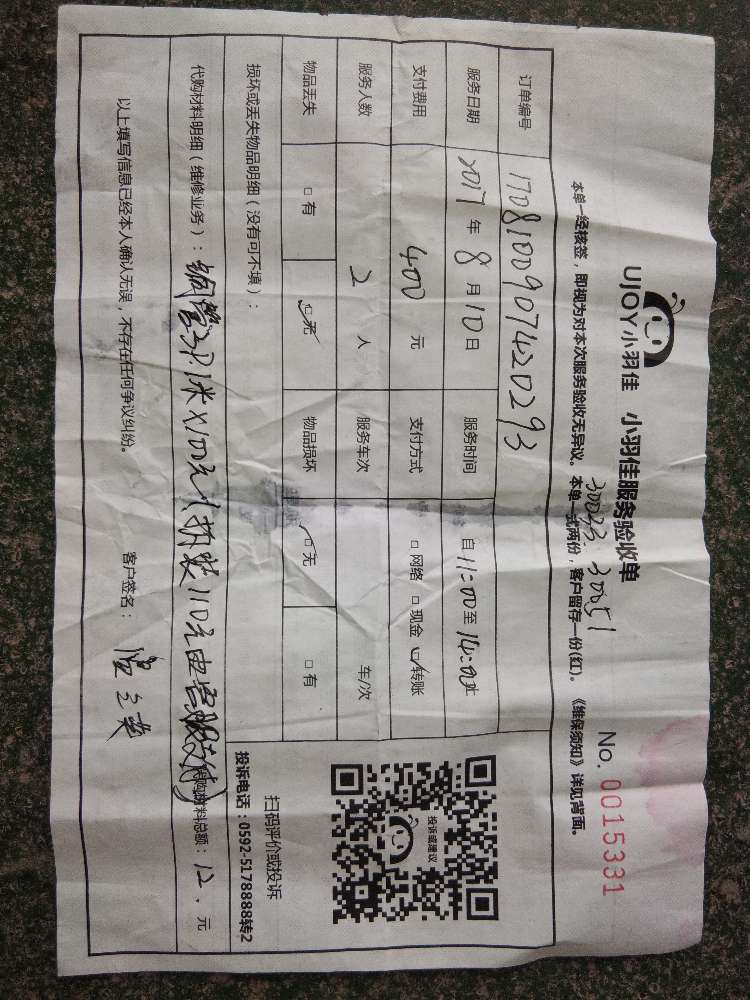 UJOY小羽佳 小羽佳服务验收单
No. 0015331
30033. 30051
本单一经核签，即视为对本次服务验收无异议。本单一式两份，客户留存一份(红)。《维保须知》详见背面。
订单编号 1708100907420293
服务日期 2017年8月10日 服务时间 自11:00至14:00止
支付费用 400元 支付方式 □网络 □现金 ☑转账
服务人数 2人 服务车次 车/次
物品丢失 □有 ☑无 物品损坏 ☑无 □有
损坏或丢失物品明细（没有可不填）：
代购材料明细（维修业务）：铜管 米×100元（拆装110元 付）
代购材料总额：12.元
以上填写信息已经本人确认无误，不存在任何争议纠纷。 客户签名：
投诉或建议
扫码评价或投诉
投诉电话：0592-5178888转2